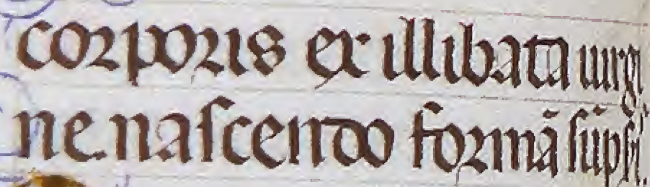 corporis ex illibata uirgi
ne. naſcendo formā ſūpſi.